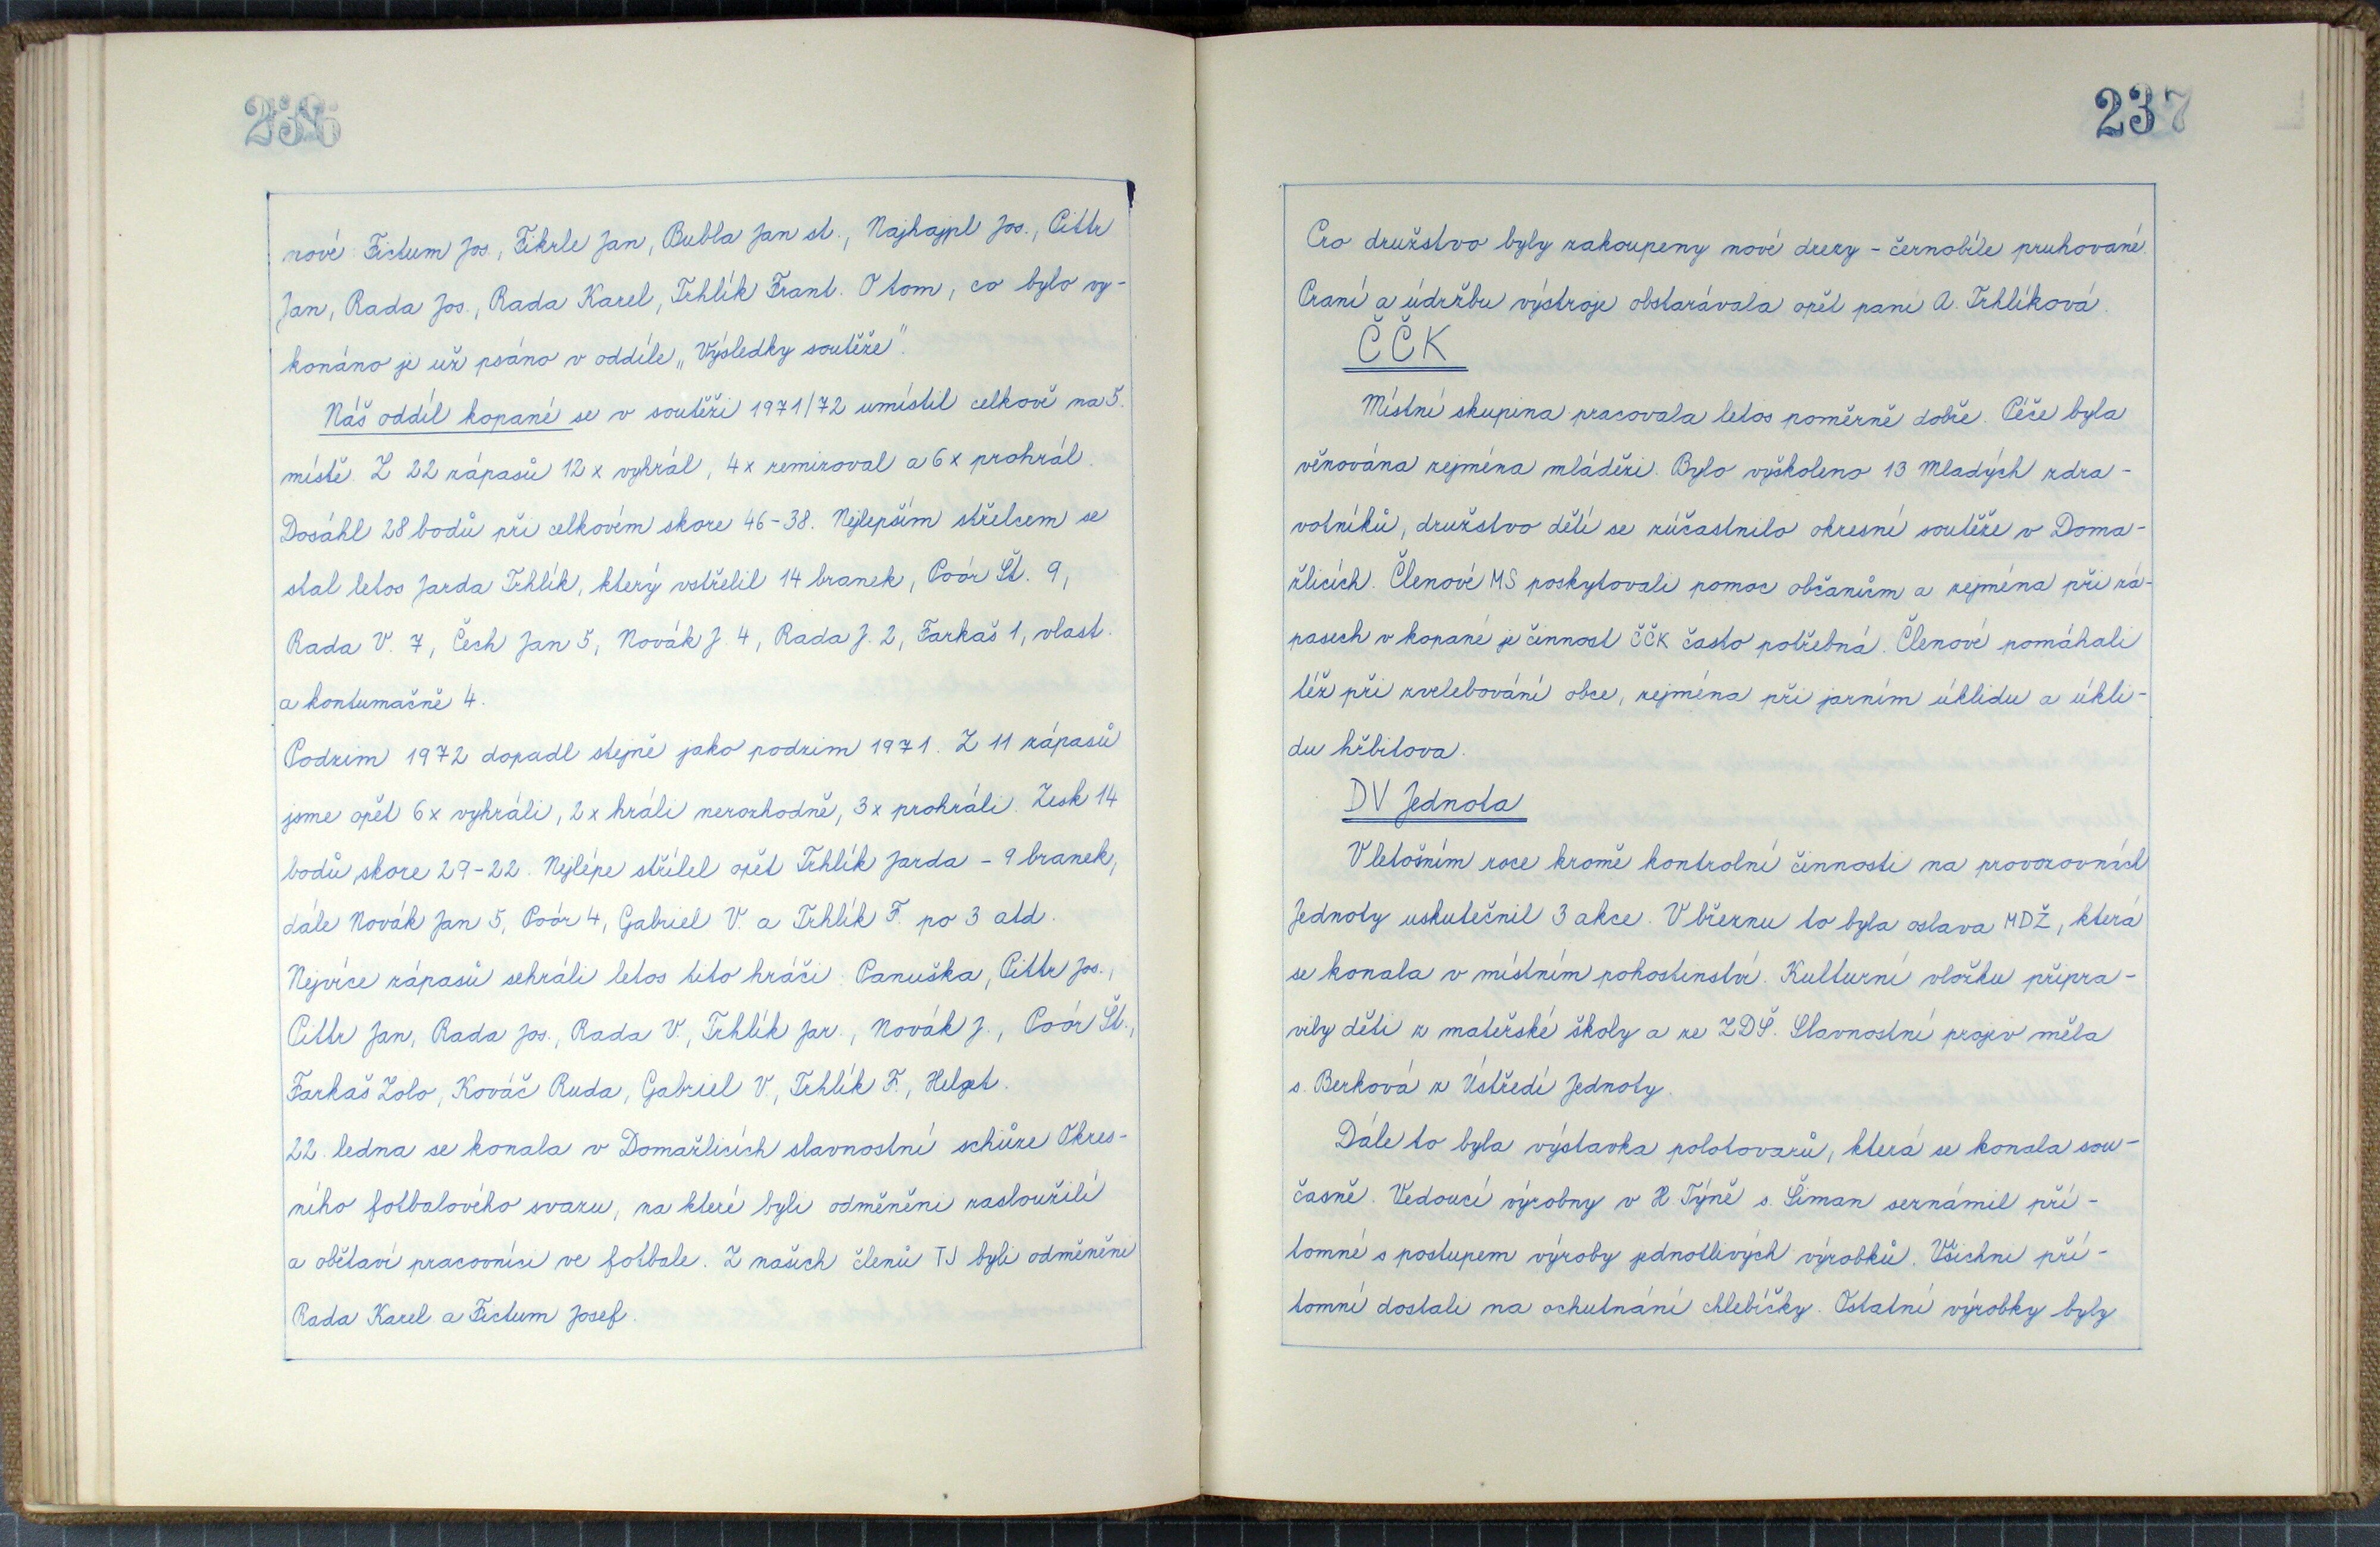 236
nové: Fictum Jos., Fikrle Jan, Bubla Jan st., Najhajpl Jos., Pittr
Jan, Rada Jos., Rada Karel, Trhlík Frant. O tom, co bylo vy-
konáno je už psáno v oddíle „Výsledky soutěže".
Náš oddíl kopané se v soutěži 1971/72 umístil celkově na 5.
místě. Z 22 zápasů 12x vyhrál, 4x remizoval a 6x prohrál.
Dosáhl 28 bodů při celkovém skore 46-38. Nejlepším střelcem se
stal letos Jarda Trhlík, který vstřelil 14 branek, Poór Št. 9,
Rada V. 7, Čech Jan 5, Novák J. 4, Rada J. 2, Farkaš 1, vlast.
a kontumačně 4.
Podzim 1972 dopadl stejně jako podzim 1971. Z 11 zápasů
jsme opět 6x vyhráli, 2x hráli nerozhodně, 3x prohráli. Zisk 14
bodů, skore 29-22. Nejlépe střílel opět Trhlík Jarda - 9 branek,
dále Novák Jan 5, Poór 4, Gabriel V. a Trhlík F. po 3 atd.
Nejvíce zápasů sehráli letos tito hráči: Panuška, Pittr Jos.,
Pittr Jan, Rada Jos., Rada V., Trhlík Jar., Novák J., Poór Št.,
Farkaš Zolo, Kováč Ruda, Gabriel V., Trhlík F., Helget.
22. ledna se konala v Domažlicích slavnostní schůze Okres-
ního fotbalového svazu, na které byli odměněni zasloužilí
a obětaví pracovníci ve fotbale. Z našich členů TJ byli odměněni
Rada Karel a Fictum Josef.
237
Pro družstvo byly zakoupeny nové drezy - černobíle pruhované.
Praní a údržbu výstroje obstarávala opět paní A. Trhlíková.
ČČK
Místní skupina pracovala letos poměrně dobře. Péče byla
věnována zejména mládeži. Bylo vyškoleno 13 Mladých zdra-
votníků, družstvo dětí se zúčastnilo okresní soutěže v Doma-
žlicích. Členové MS poskytovali pomoc občanům a zejména při zá-
pasech v kopané je činnost ČČK často potřebná. Členové pomáhali
též při zvelebování obce, zejména při jarním úklidu a úkli-
du hřbitova.
DV Jednota
V letošním roce kromě kontrolní činnosti na provozovnách
Jednoty uskutečnil 3 akce. V březnu to byla oslava MDŽ, která
se konala v místním pohostinství. Kulturní vložku připra-
vily děti z mateřské školy a ze ZDŠ. Slavnostní projev měla
s. Berková z Ústředí Jednoty.
Dále to byla výstavka polotovarů, která se konala sou-
časně. Vedoucí výrobny v H. Týně s. Šiman seznámil pří-
tomné s postupem výroby jednotlivých výrobků. Všichni pří-
tomní dostali na ochutnání chlebíčky. Ostatní výrobky byly